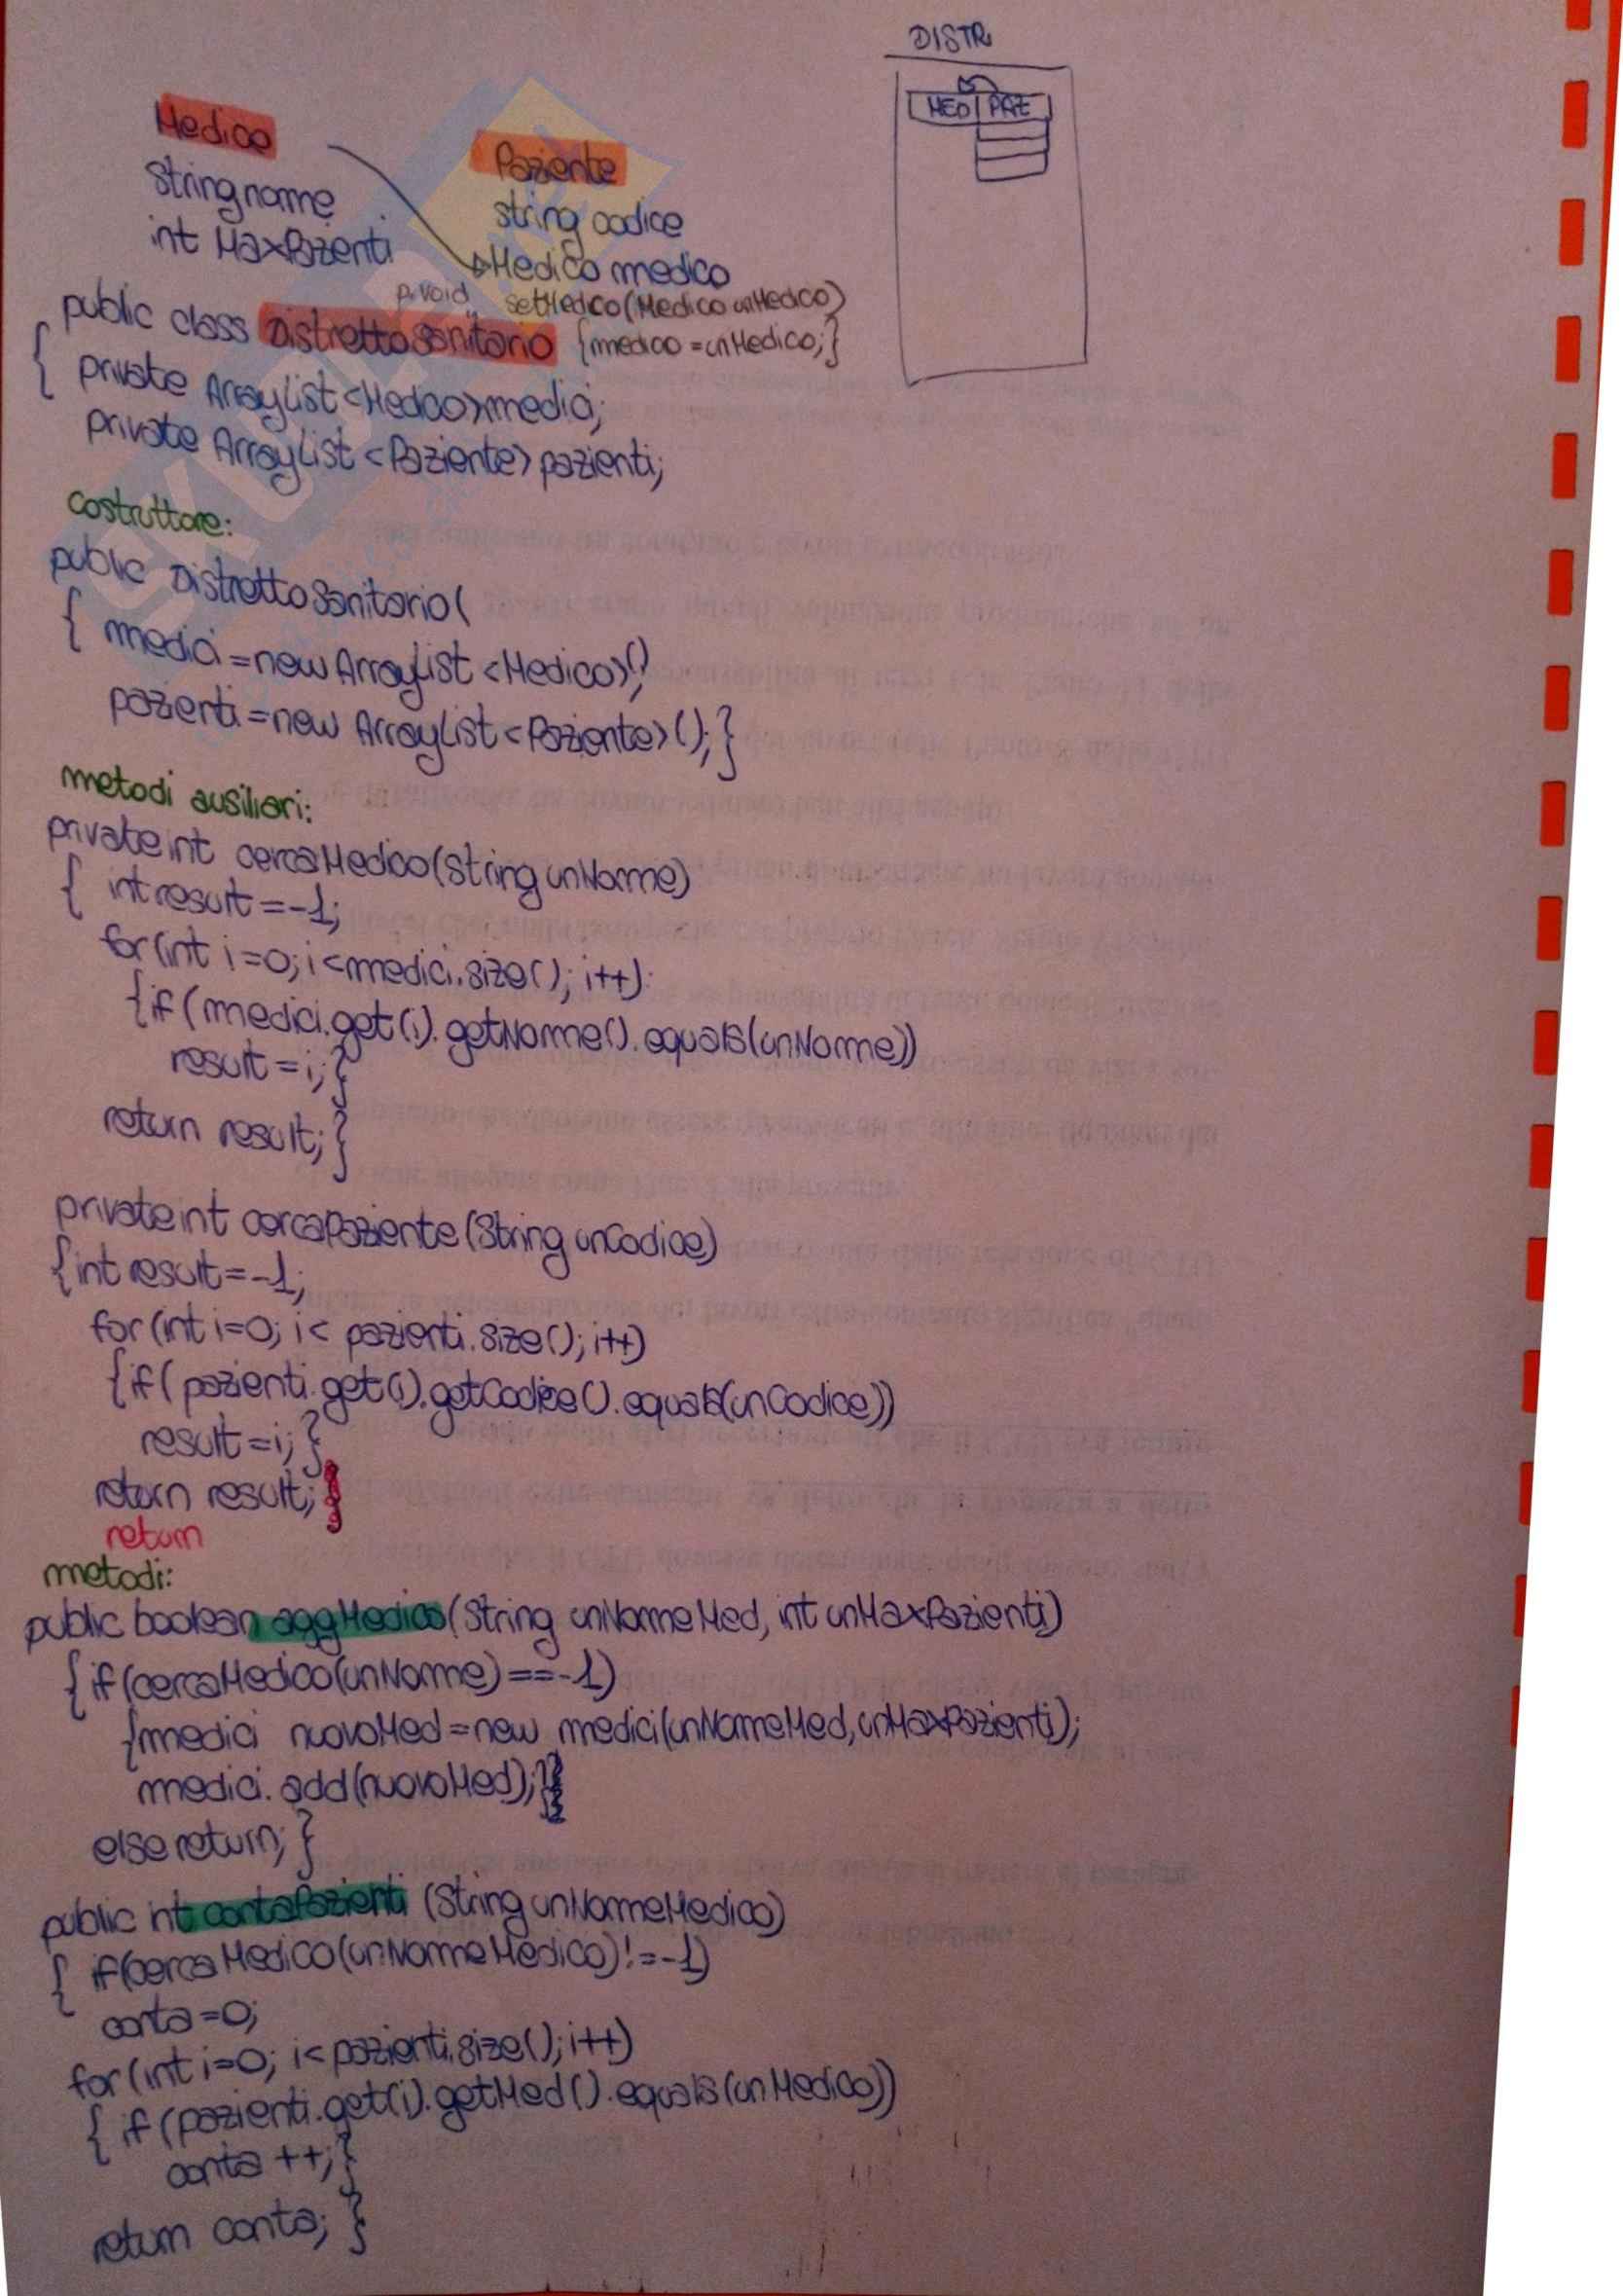 DISTR
MED PAZ
Medico
String nome
int MaxPazienti
Paziente
string codice
Medico medico
p.void setMedico(Medico unMedico)
{medico = unMedico;}
public class DistrettoSanitario
{ private ArrayList<Medico>medici;
private ArrayList<Paziente> pazienti;
costruttore:
public DistrettoSanitario(
{ medici = new ArrayList <Medico>();
pazienti = new ArrayList <Paziente>();}
metodi ausiliari:
private int cercaMedico(String unNome)
{ int result = -1;
for(int i=0; i<medici.size(); i++)
{if (medici.get(i).getNome().equals(unNome))
result = i;}
return result;}
private int cercaPaziente (String unCodice)
{int result = -1;
for (int i=0; i< pazienti.size(); i++)
{if( pazienti.get(i).getCodice().equals(unCodice))
result = i;}
return result;}
return
metodi:
public boolean aggMedico(String unNomeMed, int unMaxPazienti)
{if(cercaMedico(unNome)==-1)
{medici nuovoMed = new medici(unNomeMed,unMaxPazienti);
medici.add(nuovoMed);}
else return; }
public int contaPazienti (String unNomeMedico)
{ if(cercaMedico(unNomeMedico)!=-1)
conta=0;
for (int i=0; i<pazienti.size(); i++)
{ if (pazienti.get(i).getMed().equals(unMedico))
conta ++;}
return conta; }